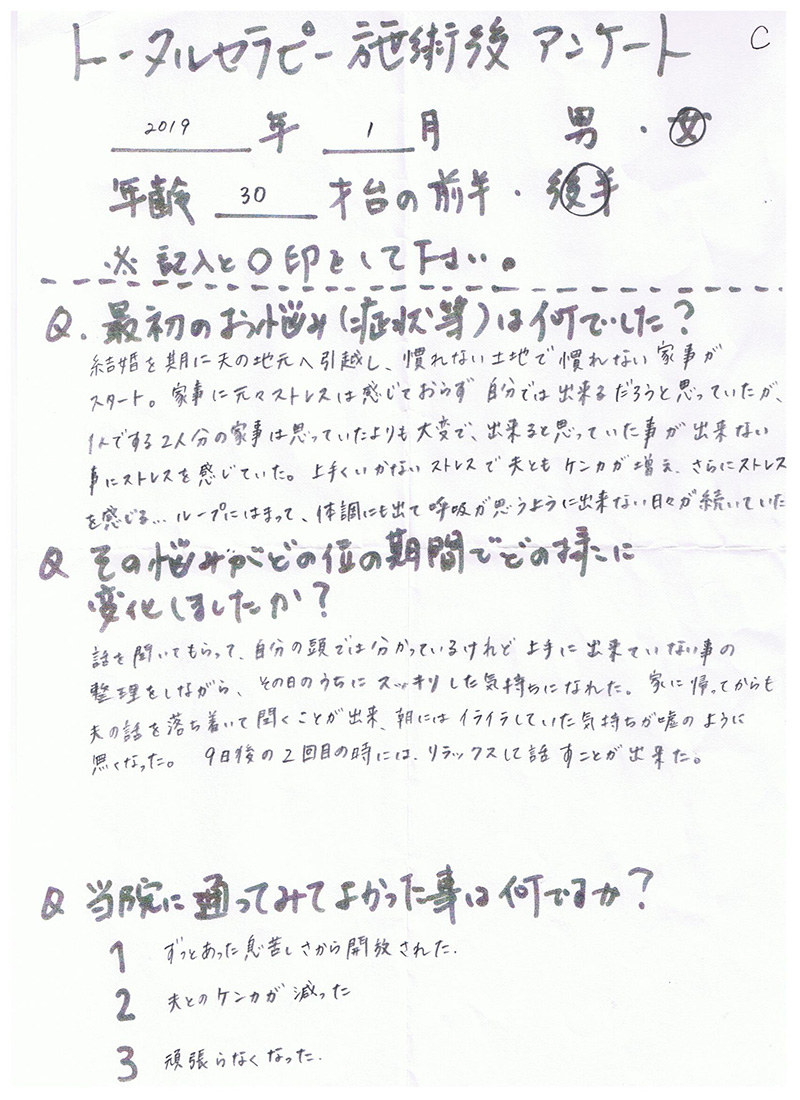 トータルセラピー施術後 アンケート
C
2019 年 1 月 男・女
年齢 30 才台の前半・後半
※ 記入と○印をして下さい。
Q. 最初のお悩み(症状等)は何でした?
結婚を期に夫の地元へ引越し、慣れない土地で慣れない家事が
スタート。家事に元々ストレスは感じておらず 自分では出来るだろうと思っていたが、
1人でする2人分の家事は思っていたよりも大変で、出来ると思っていた事が出来ない
事にストレスを感じていた。上手くいかないストレスで夫ともケンカが増え、さらにストレス
を感じる…ループにはまって、体調にも出て呼吸が思うように出来ない日々が続いていた
Q その悩みがどの位の期間でどの様に
変化しましたか?
話を聞いてもらって、自分の頭では分かっているけれど上手に出来ていない事の
整理をしながら、その日のうちにスッキリした気持ちになれた。家に帰ってからも
夫の話を落ち着いて聞くことが出来、朝にはイライラしていた気持ちが嘘のように
無くなった。 9日後の2回目の時には、リラックスして話すことが出来た。
Q 当院に通ってみてよかった事は何ですか?
1 ずっとあった息苦しさから開放された.
2 夫とのケンカが減った
3 頑張らなくなった.